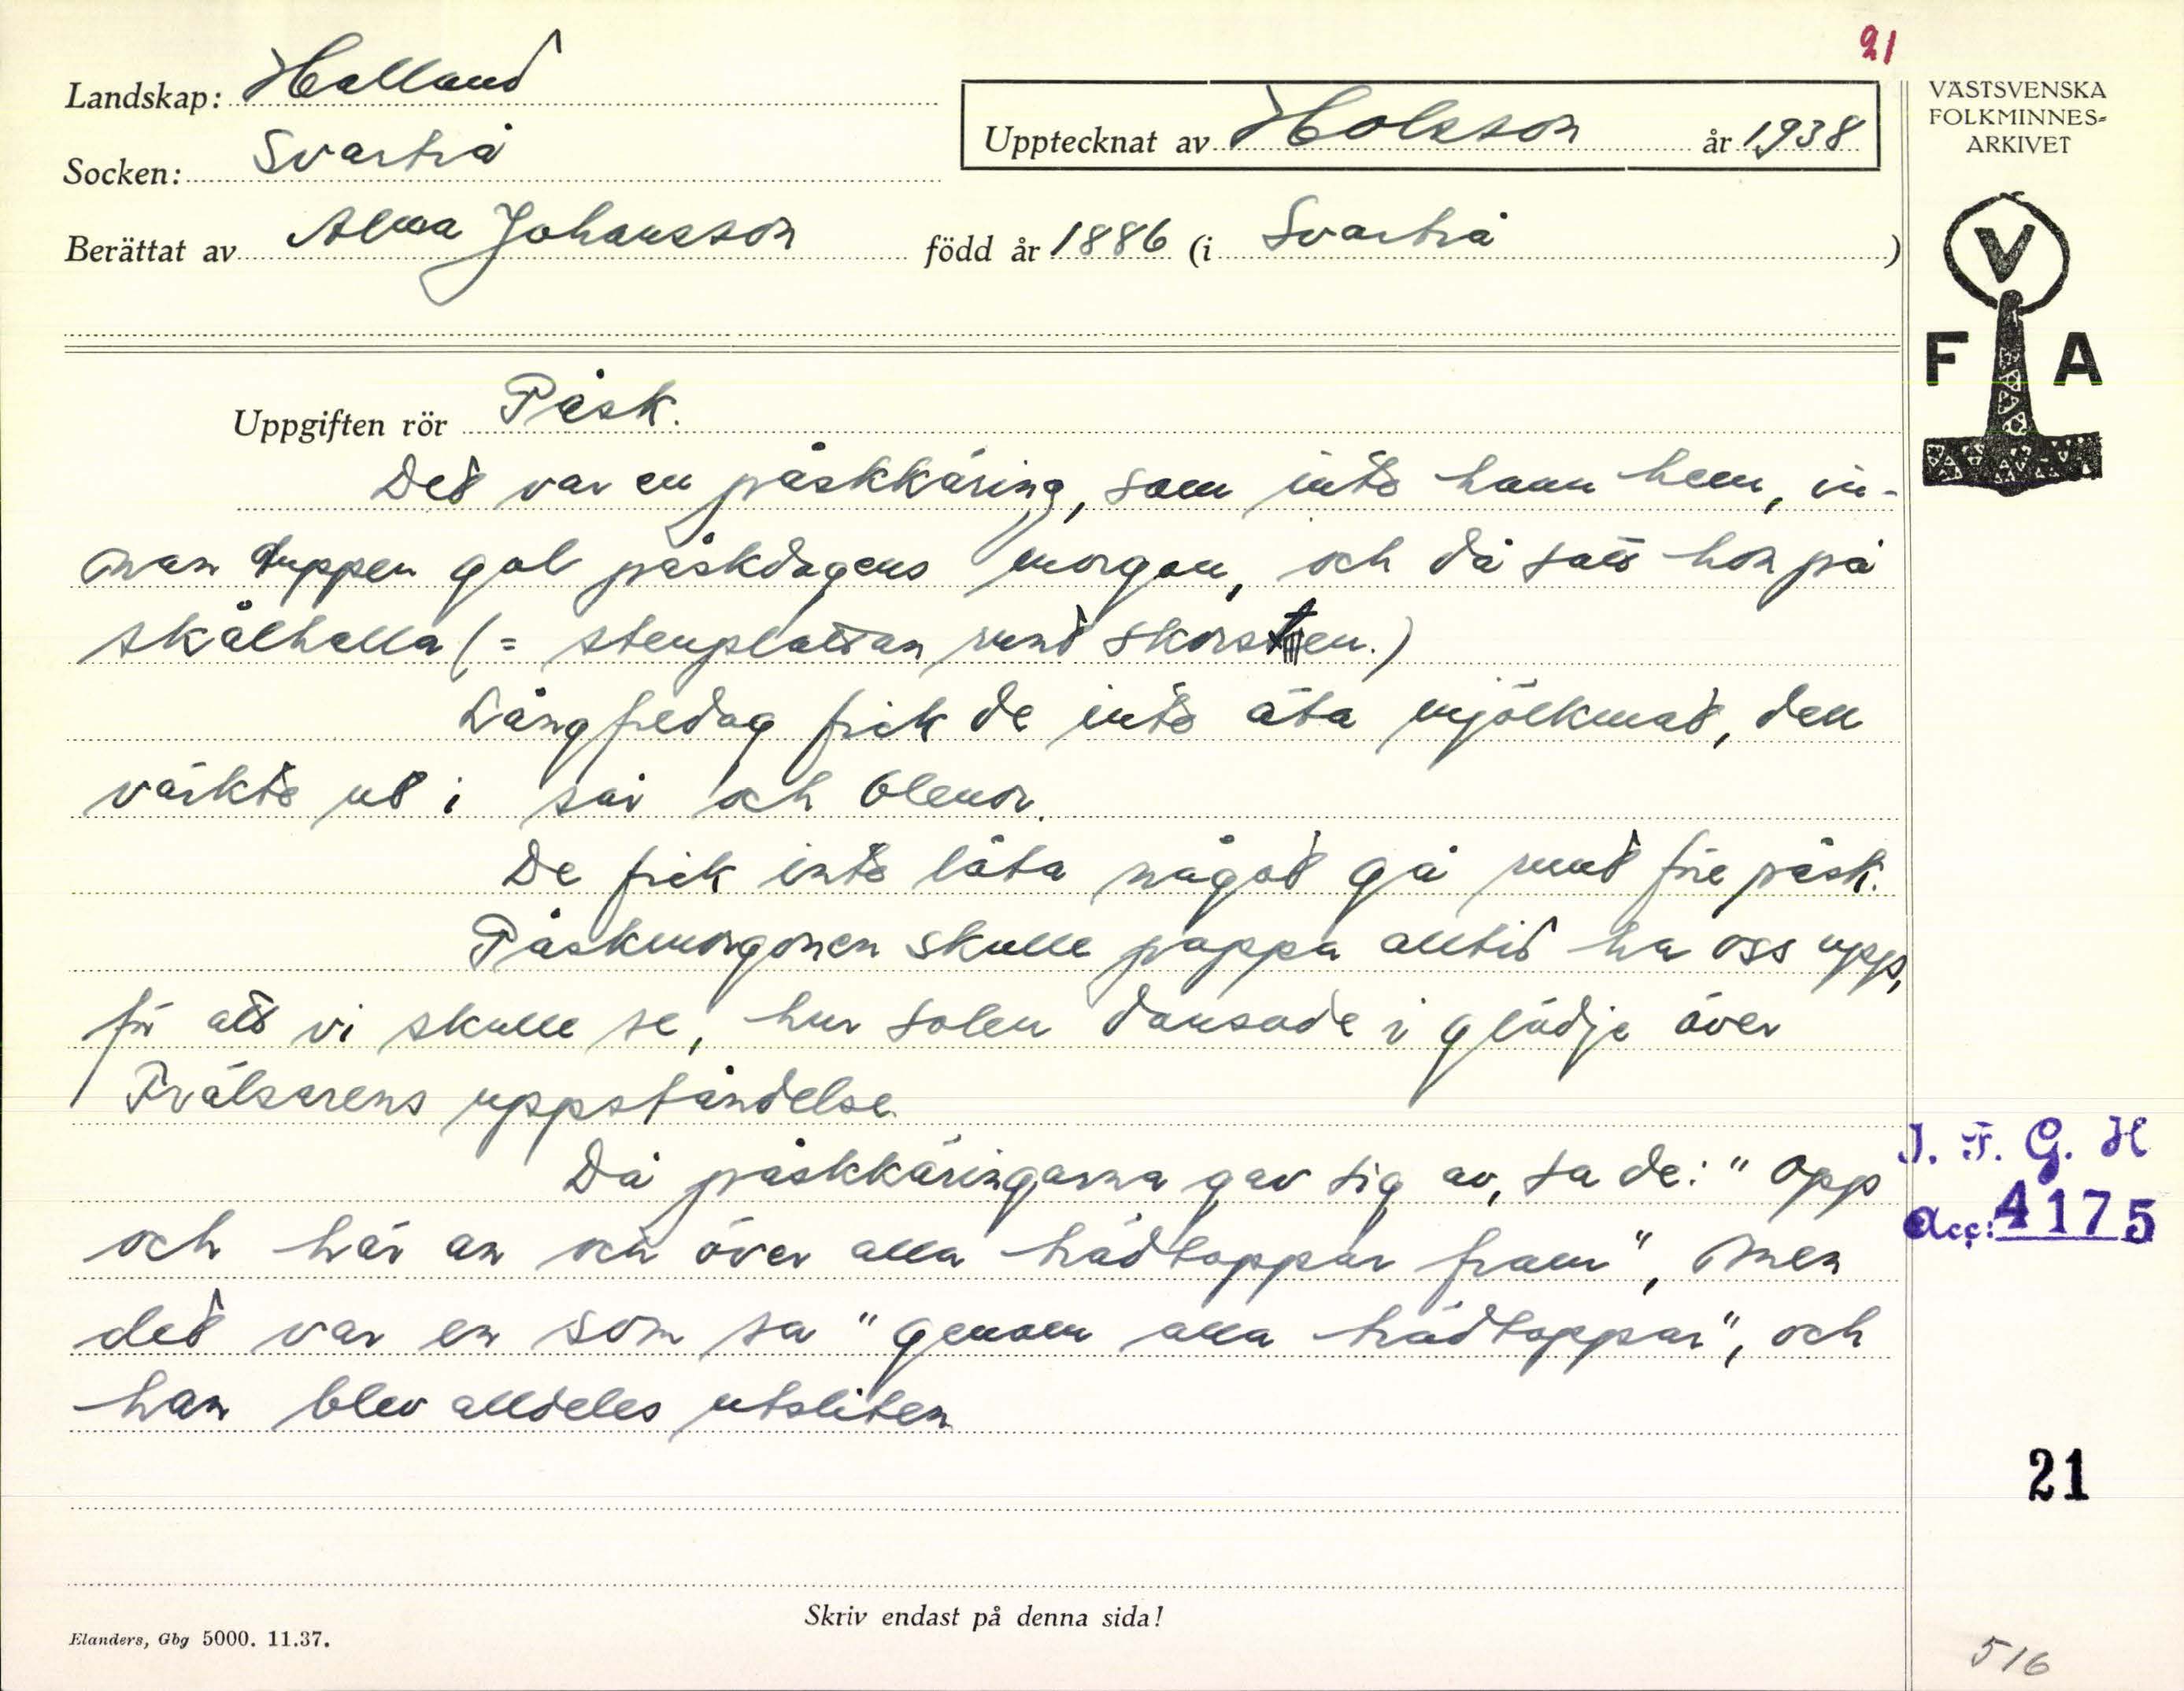 21
Landskap: Halland
Upptecknat av Holsson år 1938
VÄSTSVENSKA
FOLKMINNES-
ARKIVET
Socken: Svartrå
Berättat av Alma Johansson född år 1886 (i Svartrå)
V
F A
Uppgiften rör Påsk.
Det var en påskkäring, som inte hann hem, in-
nan tuppen gol påskdagens morgon, och då satt hon på
skålhalla (= stenplattan runt skorsten.)
Långfredag fick de inte äta mjölkmat, den
värkte ut i sår och blemor.
De fick inte låta något gå runt före påsk.
Påskmorgonen skulle pappa alltid ha oss upp,
för att vi skulle se, hur solen dansade i glädje över
Frälsarens uppståndelse.
Då påskkäringarna gav sig av, sa de: "Opp
och här an och över alla trädtoppar fram", men
det var en som sa "genom alla trädtoppar", och
han blev alldeles utsliten
I. F. G. H
Acc: 4175
21
Skriv endast på denna sida!
Elanders, Gbg 5000. 11.37.
516